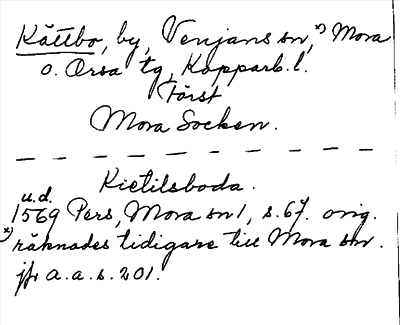 Kättbo, by, Venjans sn, x) Mora
o. Orsa tg, Kopparb. l.
Först
Mora Socken.
Kietilsboda.
u.d.
1569 Pers, Mora sn 1, s. 67. orig.
x) räknades tidigare till Mora sn.
jfr a.a.s. 201.